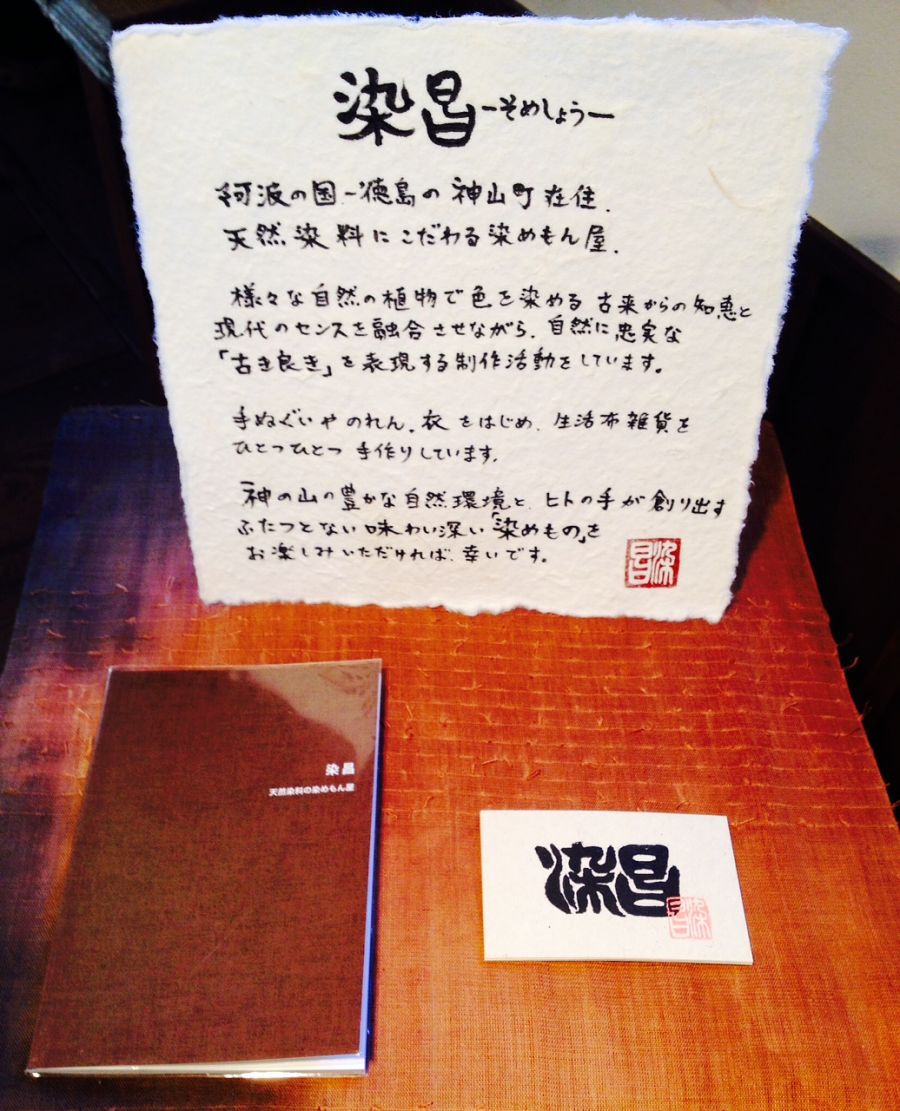 染昌 ーそめしょうー
阿波の国ー徳島の神山町在住.
天然染料にこだわる染めもん屋.
様々な自然の植物で色を染める 古来からの知恵と
現代のセンスを融合させながら、自然に忠実な
「古き良き」を表現する制作活動をしています。
手ぬぐいやのれん、衣をはじめ、生活布雑貨を
ひとつひとつ手作りしています。
神の山の豊かな自然環境と、ヒトの手が創り出す
ふたつとない味わい深い「染めもの」を
お楽しみいただければ、幸いです。
染昌
染昌
天然染料の染めもん屋
染昌
染昌